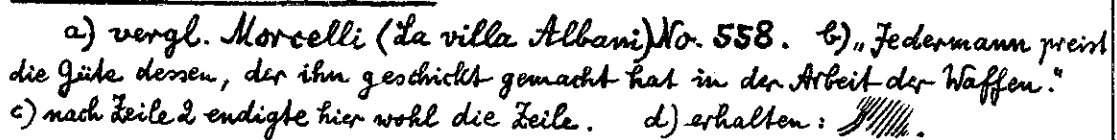 a) vergl. Morcelli (La villa Albani) No. 558. b) „Jedermann preist
die Güte dessen, der ihn geschickt gemacht hat in der Arbeit der Waffen."
c) nach Zeile 2 endigte hier wohl die Zeile. d) erhalten: .